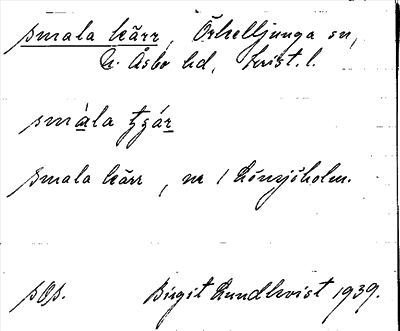 smala kärr, Örkelljunga sn,
N. Åsbo hd, Krist. l.
smàla t̯ʒár
smala kärr, nr 1 Rönnjöholm.
sOp. Birgit Lundkvist 1939.